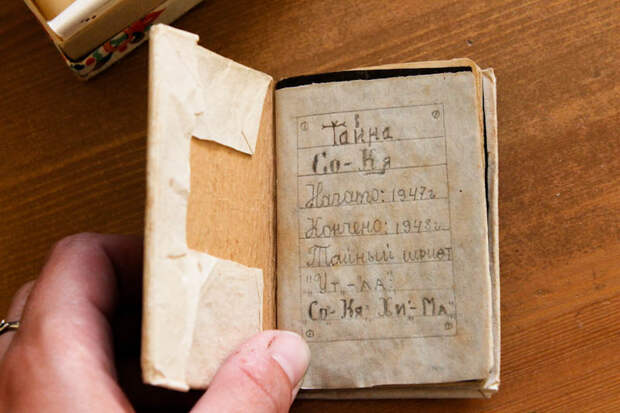 Тайна
Со-Кя
Начато: 1947г
Кончено: 1948г.
Тайный шрифт
"Ит"-"ла".
Со"-"Кя", Хи"-"Ма".